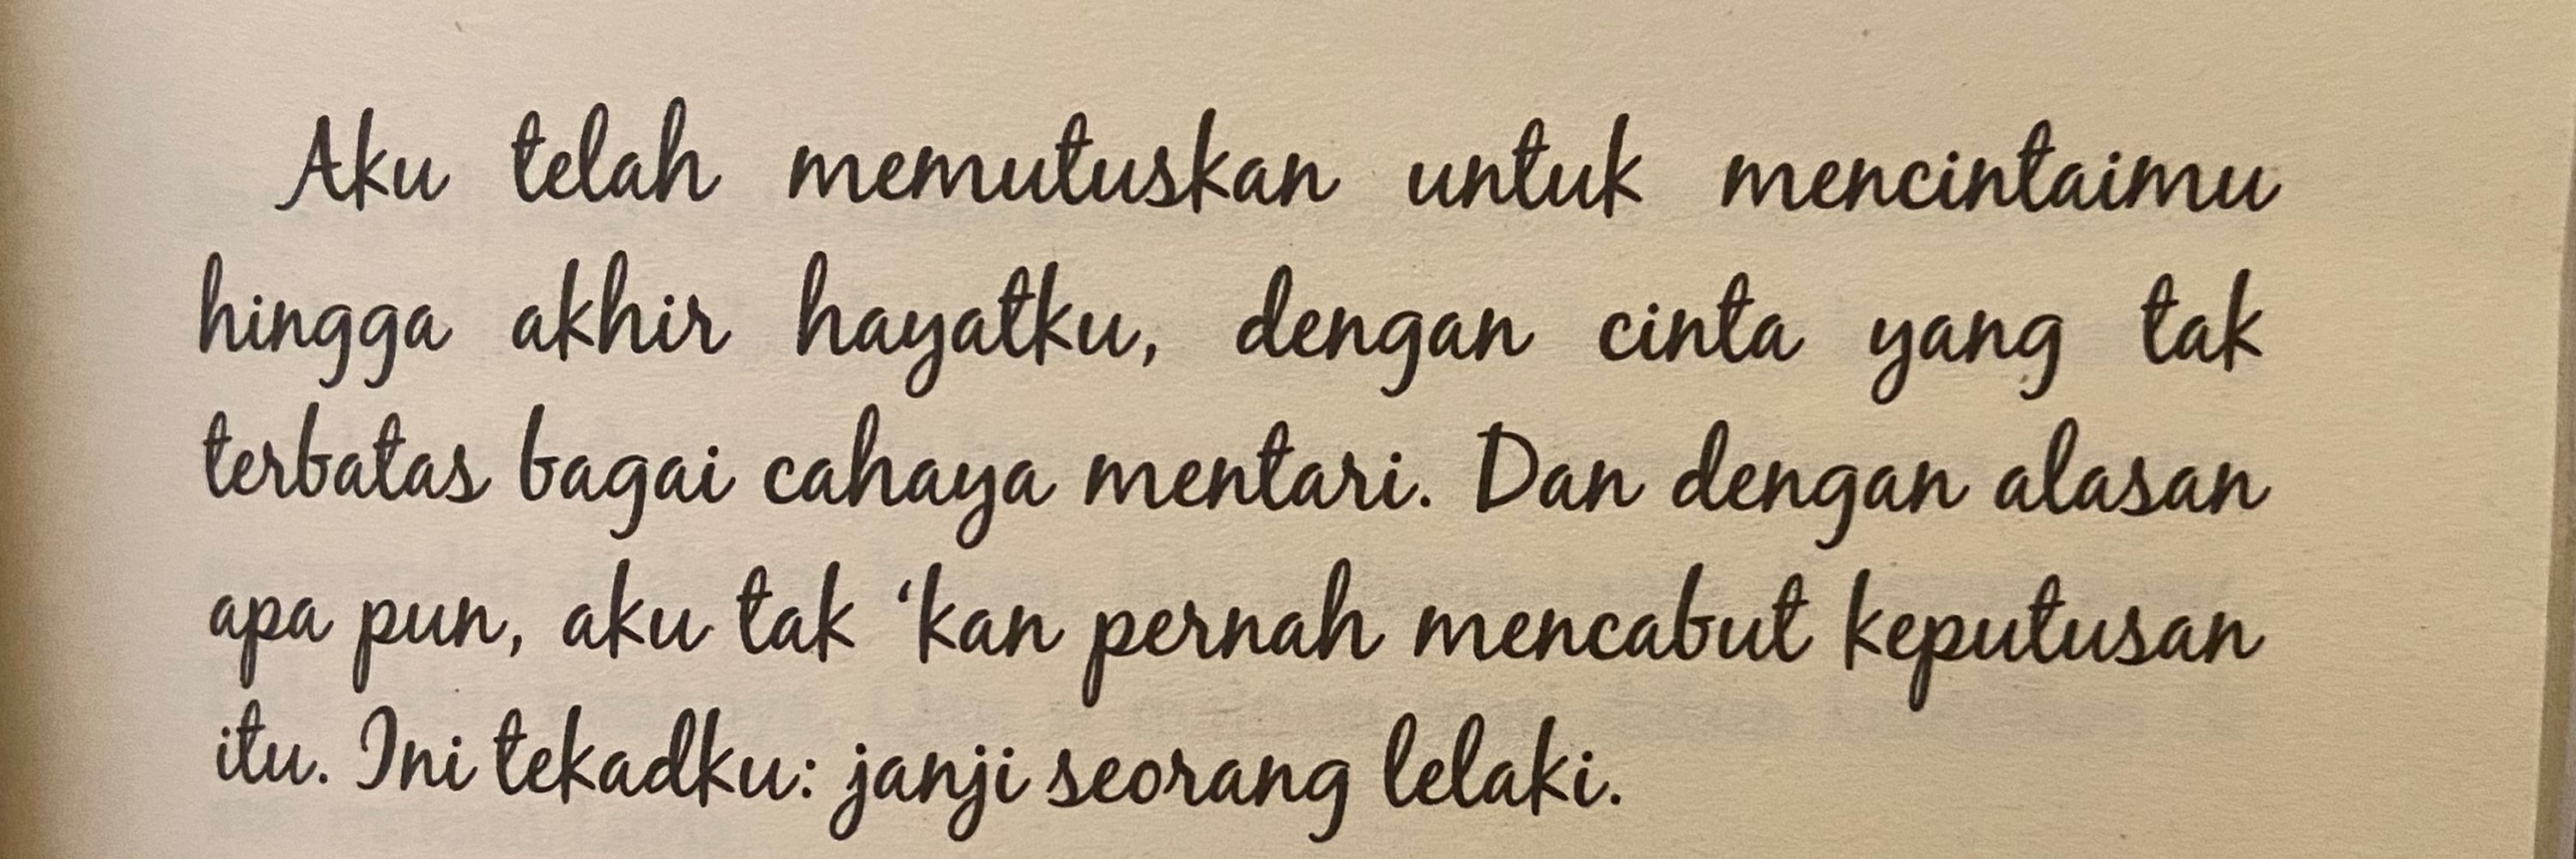 Aku telah memutuskan untuk mencintaimu
hingga akhir hayatku, dengan cinta yang tak
terbatas bagai cahaya mentari. Dan dengan alasan
apa pun, aku tak ‘kan pernah mencabut keputusan
itu. Ini tekadku: janji seorang lelaki.